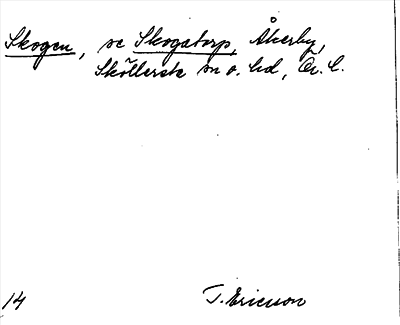 Skogen, se Skogatorp, Åkerby,
Sköllersta sn o. hd, Ör. l.
14 T. Ericsson